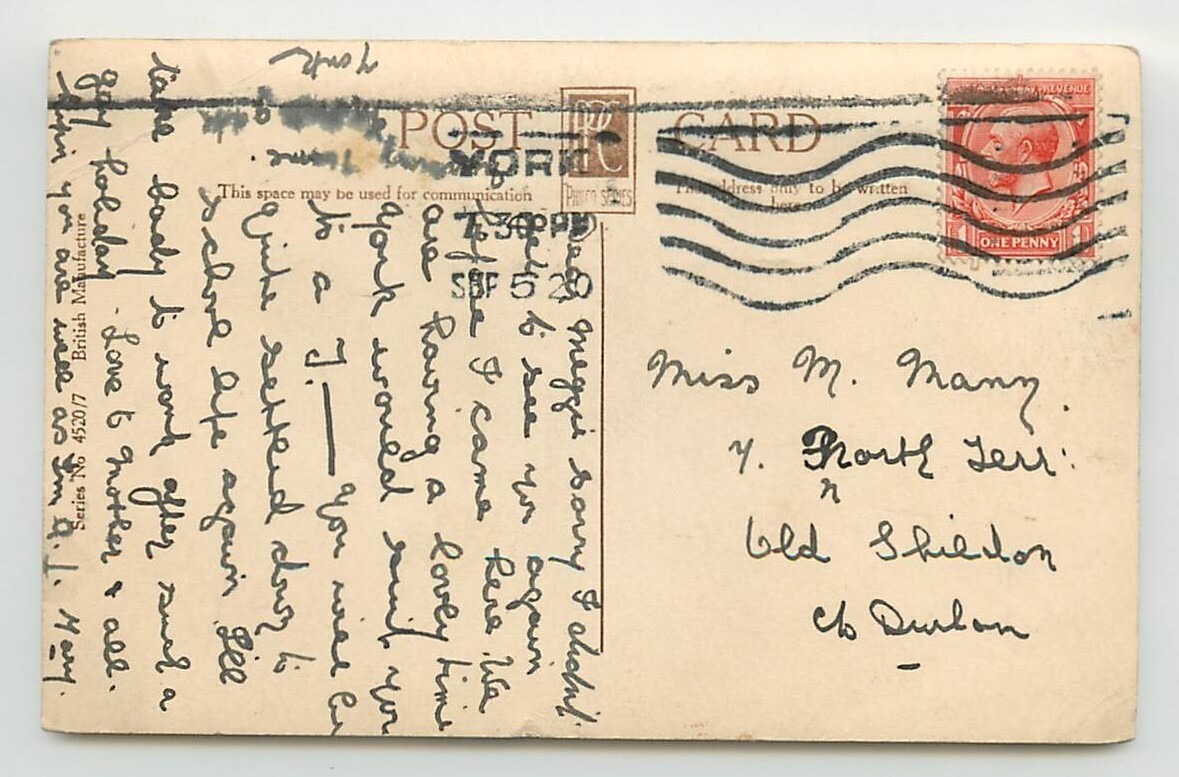 POST CARD
PHILCO SERIES
This space may be used for communication
The address only to be written
here
Series No 4520/7 British Manufacture
YORK
7.30 PM
SEP 5 20
REVENUE
1 ONE PENNY 1
York
Dear Meggie Sorry I didn't
get to see you again
before I came here We
are having a lovely time
York would suit you
to a J. — You will be
quite settled down to
school life again
take badly to work after such a
gay holiday. Love to Mother & all.
you are well as I'm
Miss M. Many.
7. North Terr:
n
Old Shildon
Co Durham